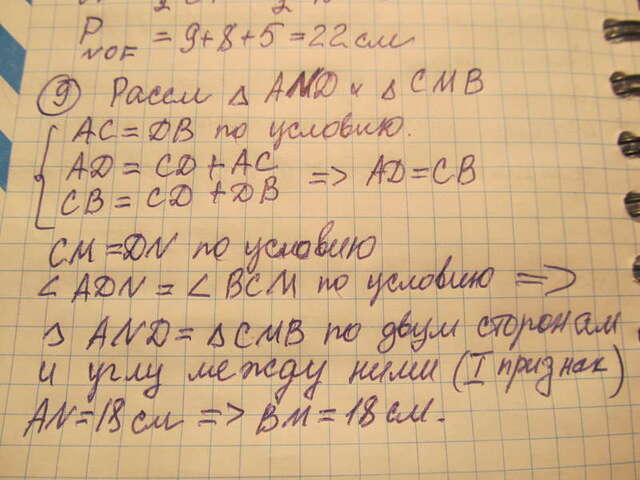 P NOF = 9+8+5=22 см
9 Рассм △ AND и △ CMB
AC = DB по условию.
AD = CD + AC
CB = CD + DB => AD=CB
CM = DN по условию
∠ ADN = ∠ BCM по условию =>
△ AND = △ CMB по двум сторонам
и углу между ними (I признак)
AN=18 см => BM = 18 см.